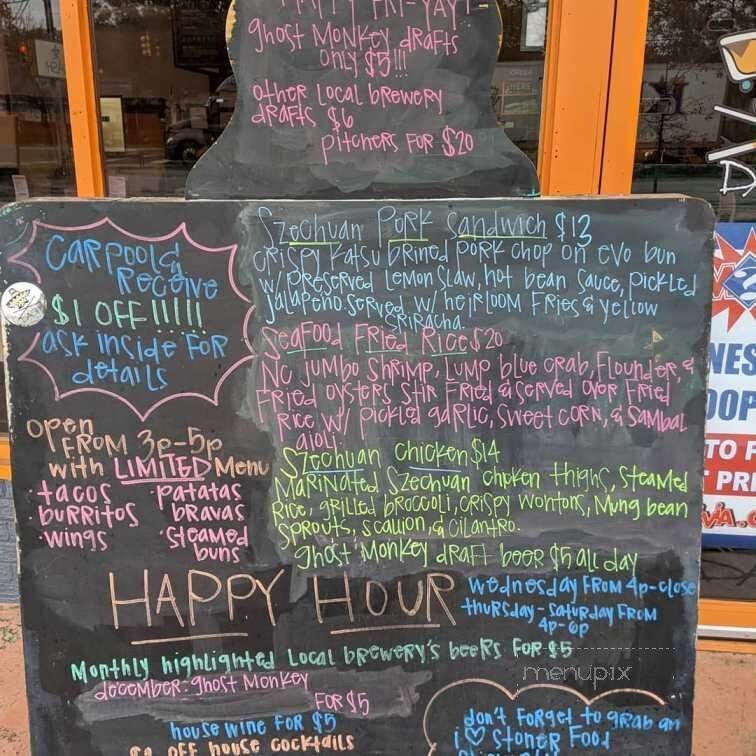 HAPPY FRI-YAY!
Ghost Monkey drafts
only $5!!!
other local brewery
drafts $6
pitchers for $20
Carpool &
Receive
$1 OFF!!!!!
ask inside for
details
Szechuan Pork Sandwich $13
Crispy Katsu brined pork chop on evo bun
w/ preserved lemon slaw, hot bean sauce, pickled
jalapeño served w/ heirloom fries & yellow
sriracha.
Seafood Fried Rice $20
NC jumbo shrimp, lump blue crab, flounder, &
fried oysters stir fried & served over fried
rice w/ pickled garlic, sweet corn, & sambal
aioli.
Szechuan Chicken $14
Marinated Szechuan chicken thighs, steamed
rice, grilled broccoli, crispy wontons, mung bean
sprouts, scallion, & cilantro.
Ghost Monkey draft beer $5 all day
open
from 3p-5p
with LIMITED Menu
·tacos
·burritos
·wings
·patatas
bravas
·steamed
buns
HAPPY HOUR
Wednesday from 4p-close
Thursday - Saturday from
4p-6p
Monthly highlighted local brewery's beers for $5
december: Ghost Monkey
for $5
house wine for $5
off house cocktails
don't forget to grab an
i ♡ Stoner Food
menupix
NES
OOP
TO P
T PRE